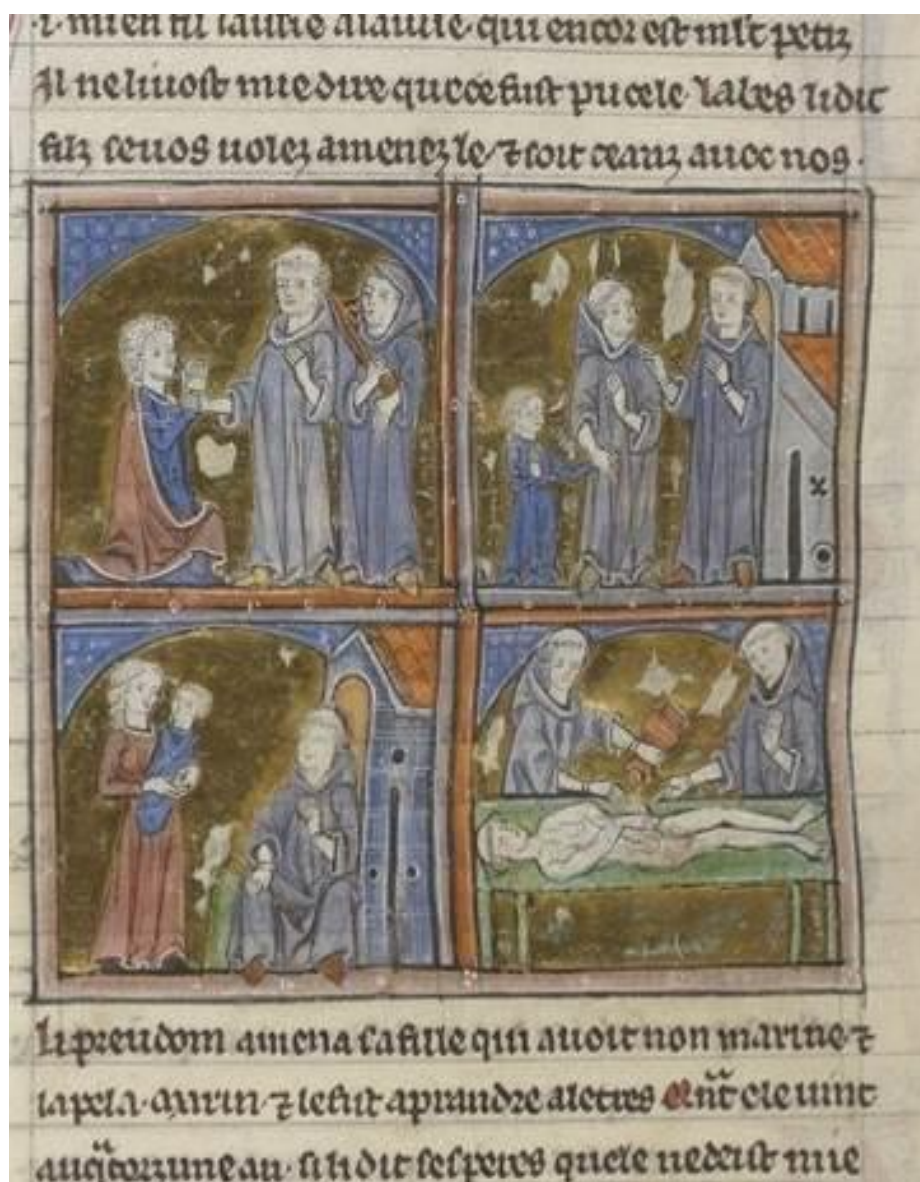 qui encor est mlt petiz
Il ne li uost mie dire que ce fust pucele. labes li dit
filz se uos uolez amenez le ⁊ soit ceanz auec nos.
li preudom amena sa fille qui auoit non marine ⁊
lapela marin ⁊ le fist aprandre a letres Qñt ele uint
an. si li dit ses peres quele ne deist mie